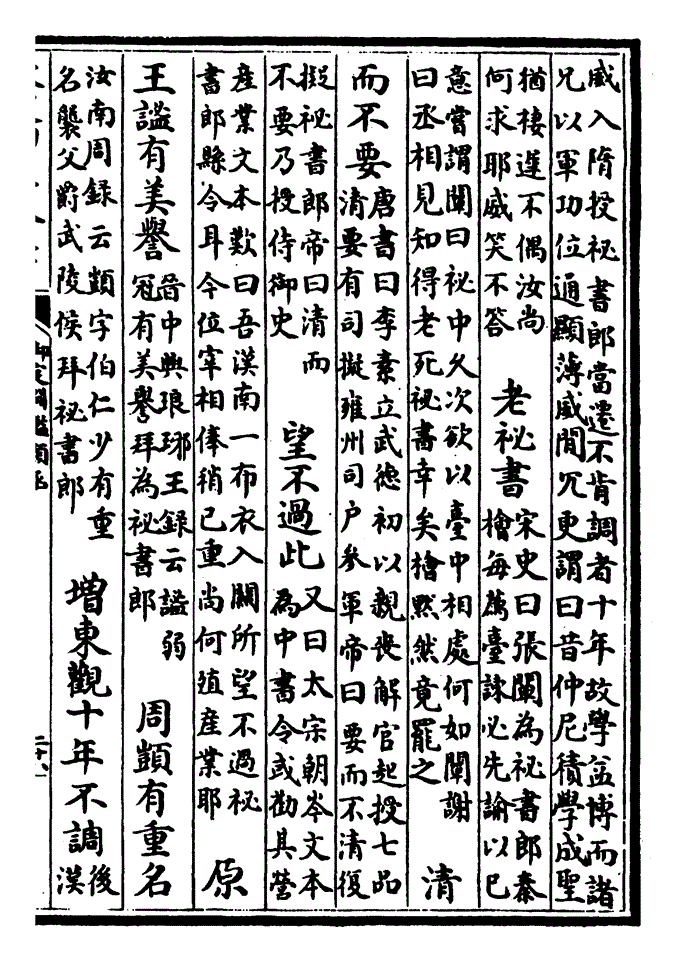 威入隋授祕書郎當遷不肯調者十年故學益博而諸
兄以軍功位通顯薄威閒冗更謂曰昔仲尼積學成聖
猶棲遑不偶汝尚
何求耶威笑不答
老祕書
宋史曰張闡為祕書郎秦
檜每薦臺諫必先諭以已
意嘗謂闡曰祕中久次欲以臺中相處何如闡謝
曰丞相見知得老死祕書幸矣檜黙然竟罷之
清
而不要
唐書曰李素立武德初以親喪解官起授七品
清要有司擬雍州司户參軍帝曰要而不清復
擬祕書郎帝曰清而
不要乃授侍御史
望不過此
又曰太宗朝岑文本
為中書令或勸其營
産業文本歎曰吾漢南一布衣入關所望不過祕
書郎縣令耳今位宰相俸稍已重尚何殖産業耶
原
王謐有美譽
晉中興琅琊王録云謐弱
冠有美譽拜為祕書郎
周顗有重名
汝南周録云顗字伯仁少有重
名襲父爵武陵侯拜祕書郎
增東觀十年不調
後
漢